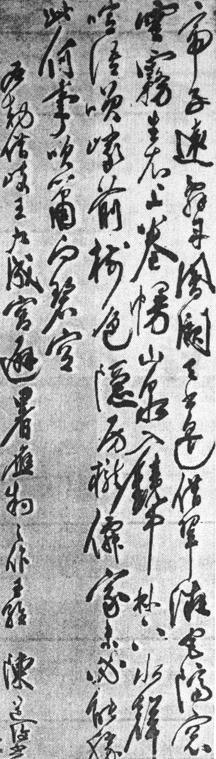 帝子遠辭丹鳳闕天書遙借翠微宮隔窗
雲霧生衣上卷幔山泉入鏡中林下水聲
喧語笑巖前樹色隱房櫳僊家未必能勝
此何事吹簫向碧空
右勅借岐王九成宮避暑應制之作王維 陳